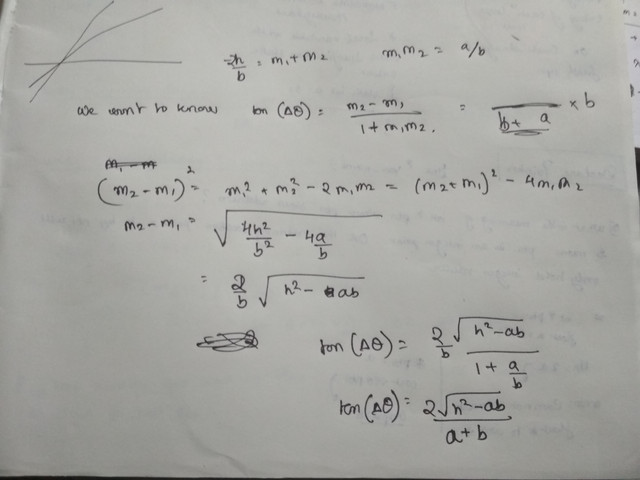 -2h/b = m₁+m₂ m₁m₂ = a/b
we want to know tan(Δθ) = (m₂-m₁)/(1+m₁m₂) = /(b+a) × b
m₁-m
(m₂-m₁)² = m₁² + m₂² - 2m₁m₂ = (m₂+m₁)² - 4m₁m₂
m₂-m₁ = √(4h²/b² - 4a/b)
= 2/b √(h²-ab)
tan(Δθ) = 2/b √(h²-ab)/(1+a/b)
tan(Δθ) = 2√(h²-ab)/(a+b)